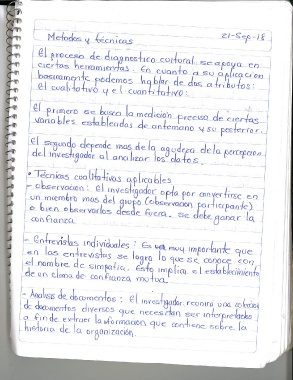 Metodos y técnicas 21-Sep-18
el proceso de diagnostico cultural se apoya en
ciertas herramientas. En cuanto a su aplicación
basicamente podemos hablar de dos atributos:
el cualitativo y el cuantitativo:
el primero se busca la medición precisa de ciertas
variables establecidas de antemano y su posterior.
el segundo depende mas de la agudeza de la percepcion
del investigador al analizar los datos.
• Tecnicas cualitativas aplicables
- observacion: el investigador opta por convertirse en
un miembro mas del grupo (observacion participante)
o bien observarlos desde fuera. se debe ganar la
confianza
- Entrevistas individuales: Es muy importante que
en las entrevistas se logra lo que se conoce con
el nombre de simpatia. Esto implica el establecimiento
de un clima de confianza mutua.
- Analisis de documentos: El investigador reunira una coleccion
de documentos diversos que necesitan ser interpretados
a fin de extraer la informacion que contiene sobre la
historia de la organización.